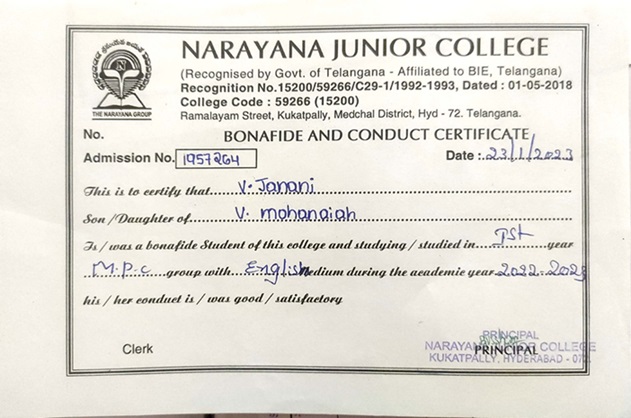 NARAYANA JUNIOR COLLEGE
(Recognised by Govt. of Telangana - Affiliated to BIE, Telangana)
Recognition No.15200/59266/C29-1/1992-1993, Dated : 01-05-2018
College Code : 59266 (15200)
THE NARAYANA GROUP
Ramalayam Street, Kukatpally, Medchal District, Hyd - 72. Telangana.
No. BONAFIDE AND CONDUCT CERTIFICATE
Admission No. 1957264 Date : 23/1/2023
This is to certify that V. Janani
Son / Daughter of V. mohanaiah
Is / was a bonafide Student of this college and studying / studied in Ist year
M.P.C group with English Medium during the academic year 2022-2023
his / her conduct is / was good / satisfactory
PRINCIPAL
NARAYANA JUNIOR COLLEGE
Clerk PRINCIPAL
KUKATPALLY, HYDERABAD - 072